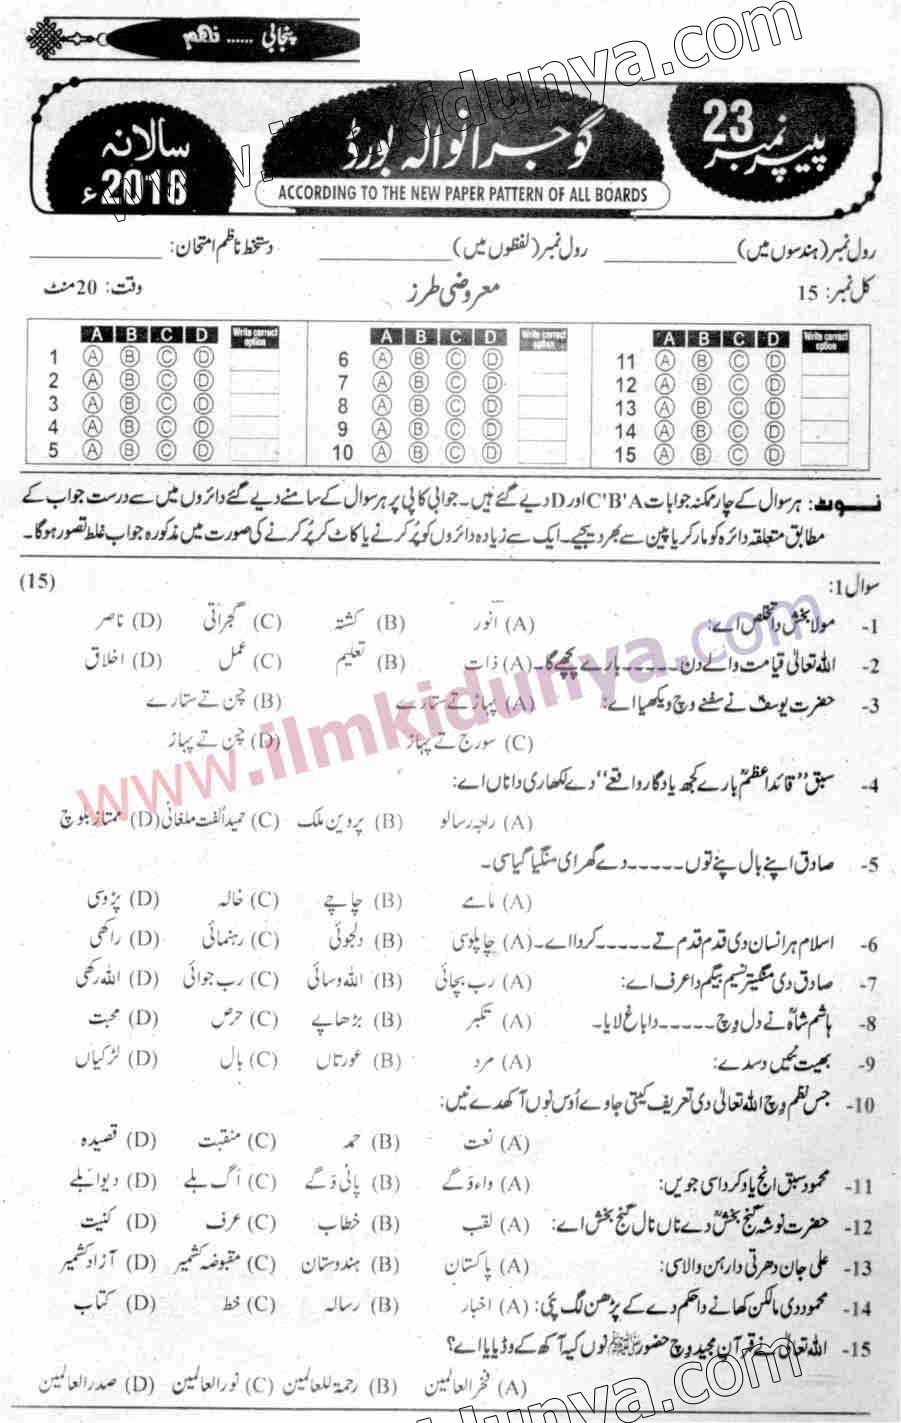 پنجابی ...... نہم
سالانہ 2016ء
گوجرانوالہ بورڈ
پیپر نمبر 23
ACCORDING TO THE NEW PAPER PATTERN OF ALL BOARDS
رول نمبر (ہندسوں میں) ____________ رول نمبر (لفظوں میں) ____________ دستخط ناظم امتحان: ____________
کل نمبر: 15 معروضی طرز وقت: 20 منٹ
A B C D Write correct option A B C D Write correct option A B C D Write correct option
1 A B C D 6 A B C D 11 A B C D
2 A B C D 7 A B C D 12 A B C D
3 A B C D 8 A B C D 13 A B C D
4 A B C D 9 A B C D 14 A B C D
5 A B C D 10 A B C D 15 A B C D
نوٹ: ہر سوال کے چار ممکنہ جوابات C'B'A اور D دیے گئے ہیں۔ جوابی کاپی پر ہر سوال کے سامنے دیے گئے دائروں میں سے درست جواب کے
مطابق متعلقہ دائرہ کو مارکر یا پین سے بھر دیجیے۔ ایک سے زیادہ دائروں کو پُر کرنے یا کاٹ کر پُر کرنے کی صورت میں مذکورہ جواب غلط تصور ہوگا۔
سوال 1: (15)
1- مولا بخش دا تخلص اے: (A) انور (B) کشتہ (C) گجراتی (D) ناصر
2- اللہ تعالیٰ قیامت والے دن۔۔۔۔۔۔بارے پچھے گا۔ (A) ذات (B) تعلیم (C) عمل (D) اخلاق
3- حضرت یوسفؑ نے سفنے وچ ویکھیا اے: (A) پہاڑ تے ستارے (B) چن تے ستارے
(C) سورج تے پہاڑ (D) چن تے پہاڑ
4- سبق "قائداعظمؒ بارے کجھ یادگار واقعے" دے لکھاری دا ناں اے:
(A) راجہ رسالو (B) پروین ملک (C) حمید اُلفت ملغانی (D) ممتاز بلوچ
5- صادق اپنے بال پنے توں۔۔۔۔۔دے گھر ای منگیا گیا سی۔
(A) مامے (B) چاچے (C) خالہ (D) پڑوسی
6- اسلام ہر انسان دی قدم قدم تے۔۔۔۔۔کردا اے۔ (A) چاپلوسی (B) دلجوئی (C) رہنمائی (D) راکھی
7- صادق دی منگیتر نسیم بیگم دا عرف اے: (A) رب بچائی (B) اللہ وسائی (C) رب جوائی (D) اللہ رکھی
8- ہاشم شاہؒ نے دل وچ۔۔۔۔۔دا باغ لایا۔ (A) تکبر (B) بڑھاپے (C) حرص (D) محبت
9- بھیت نئیں دسدے: (A) مرد (B) عورتاں (C) بال (D) لڑکیاں
10- جس نظم وچ اللہ تعالیٰ دی تعریف کیتی جاوے اُوس نوں آکھدے نیں:
(A) نعت (B) حمد (C) منقبت (D) قصیدہ
11- محمود سبق انج یاد کردا سی جویں: (A) واء وَگے (B) پانی وَگے (C) اَگ بلے (D) دیوا بلے
12- حضرت نوشہ گنج بخشؒ دے ناں نال گنج بخش اے: (A) لقب (B) خطاب (C) عرف (D) کنیت
13- علی جان دھرتی دا رہن والا سی: (A) پاکستان (B) ہندوستان (C) مقبوضہ کشمیر (D) آزاد کشمیر
14- محمود دی مالکن کھانے دا حکم دے کے پڑھن لگ پئی: (A) اخبار (B) رسالہ (C) خط (D) کتاب
15- اللہ تعالیٰ نے قرآن مجید وچ حضور ﷺ نوں کیہ آکھ کے وڈیایا اے؟
(A) فخر العالمین (B) رحمۃ للعالمین (C) نور العالمین (D) صدر العالمین
www.ilmkidunya.com